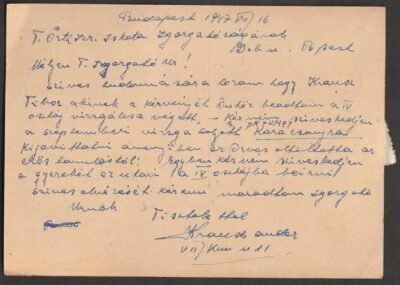 Budapest 1947 VII/16
T. Ört. Izr. Iskola Igazgatóságának
Bpest
Mélyen T. Igazgató Úr!
szives tudomására hozom hogy Krausz
Tibor akinek a kérvényét Önhöz beadtam a IV
osztály vizsgálása végett. – Kérném szíveskedjen
DÁTUMOT
a szeptemberi vizsga helyett Karácsonyra
Kijavittatni amenyiben az Orvos eltiltotta az
tanulástól. Egyben kérném szíveskedjen
a gyereket az utcai IV osztályba beirni
szives elnézését kérem, maradtam Igazgató
Urnak
Tisztelettel
Krausz Sandor
VII/ Kun u 11